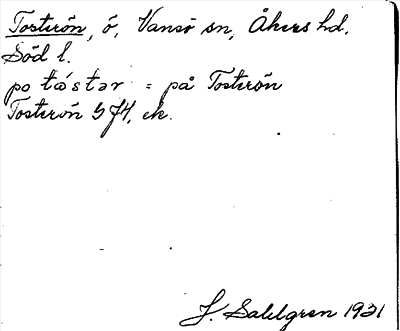 Tosterön, ö, Vansö sn, Åkers hd.
Söd l.
po tòstər = på Tosterön
Tosterön GJ4, ek.
J. Sahlgren 1931